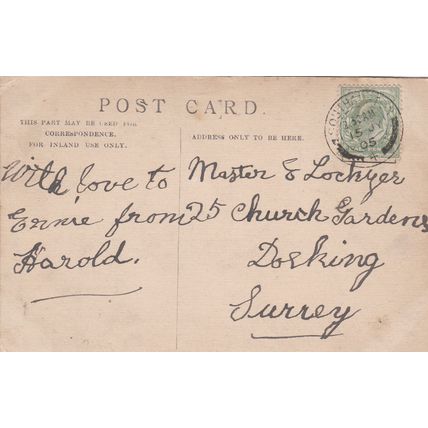 POST CARD.
THIS PART MAY BE USED FOR
CORRESPONDENCE.
FOR INLAND USE ONLY.
ADDRESS ONLY TO BE HERE.
With love to
Ernie from
Harold.
Master E Lockyer
25 Church Gardens
Dorking
Surrey
15 JY
05